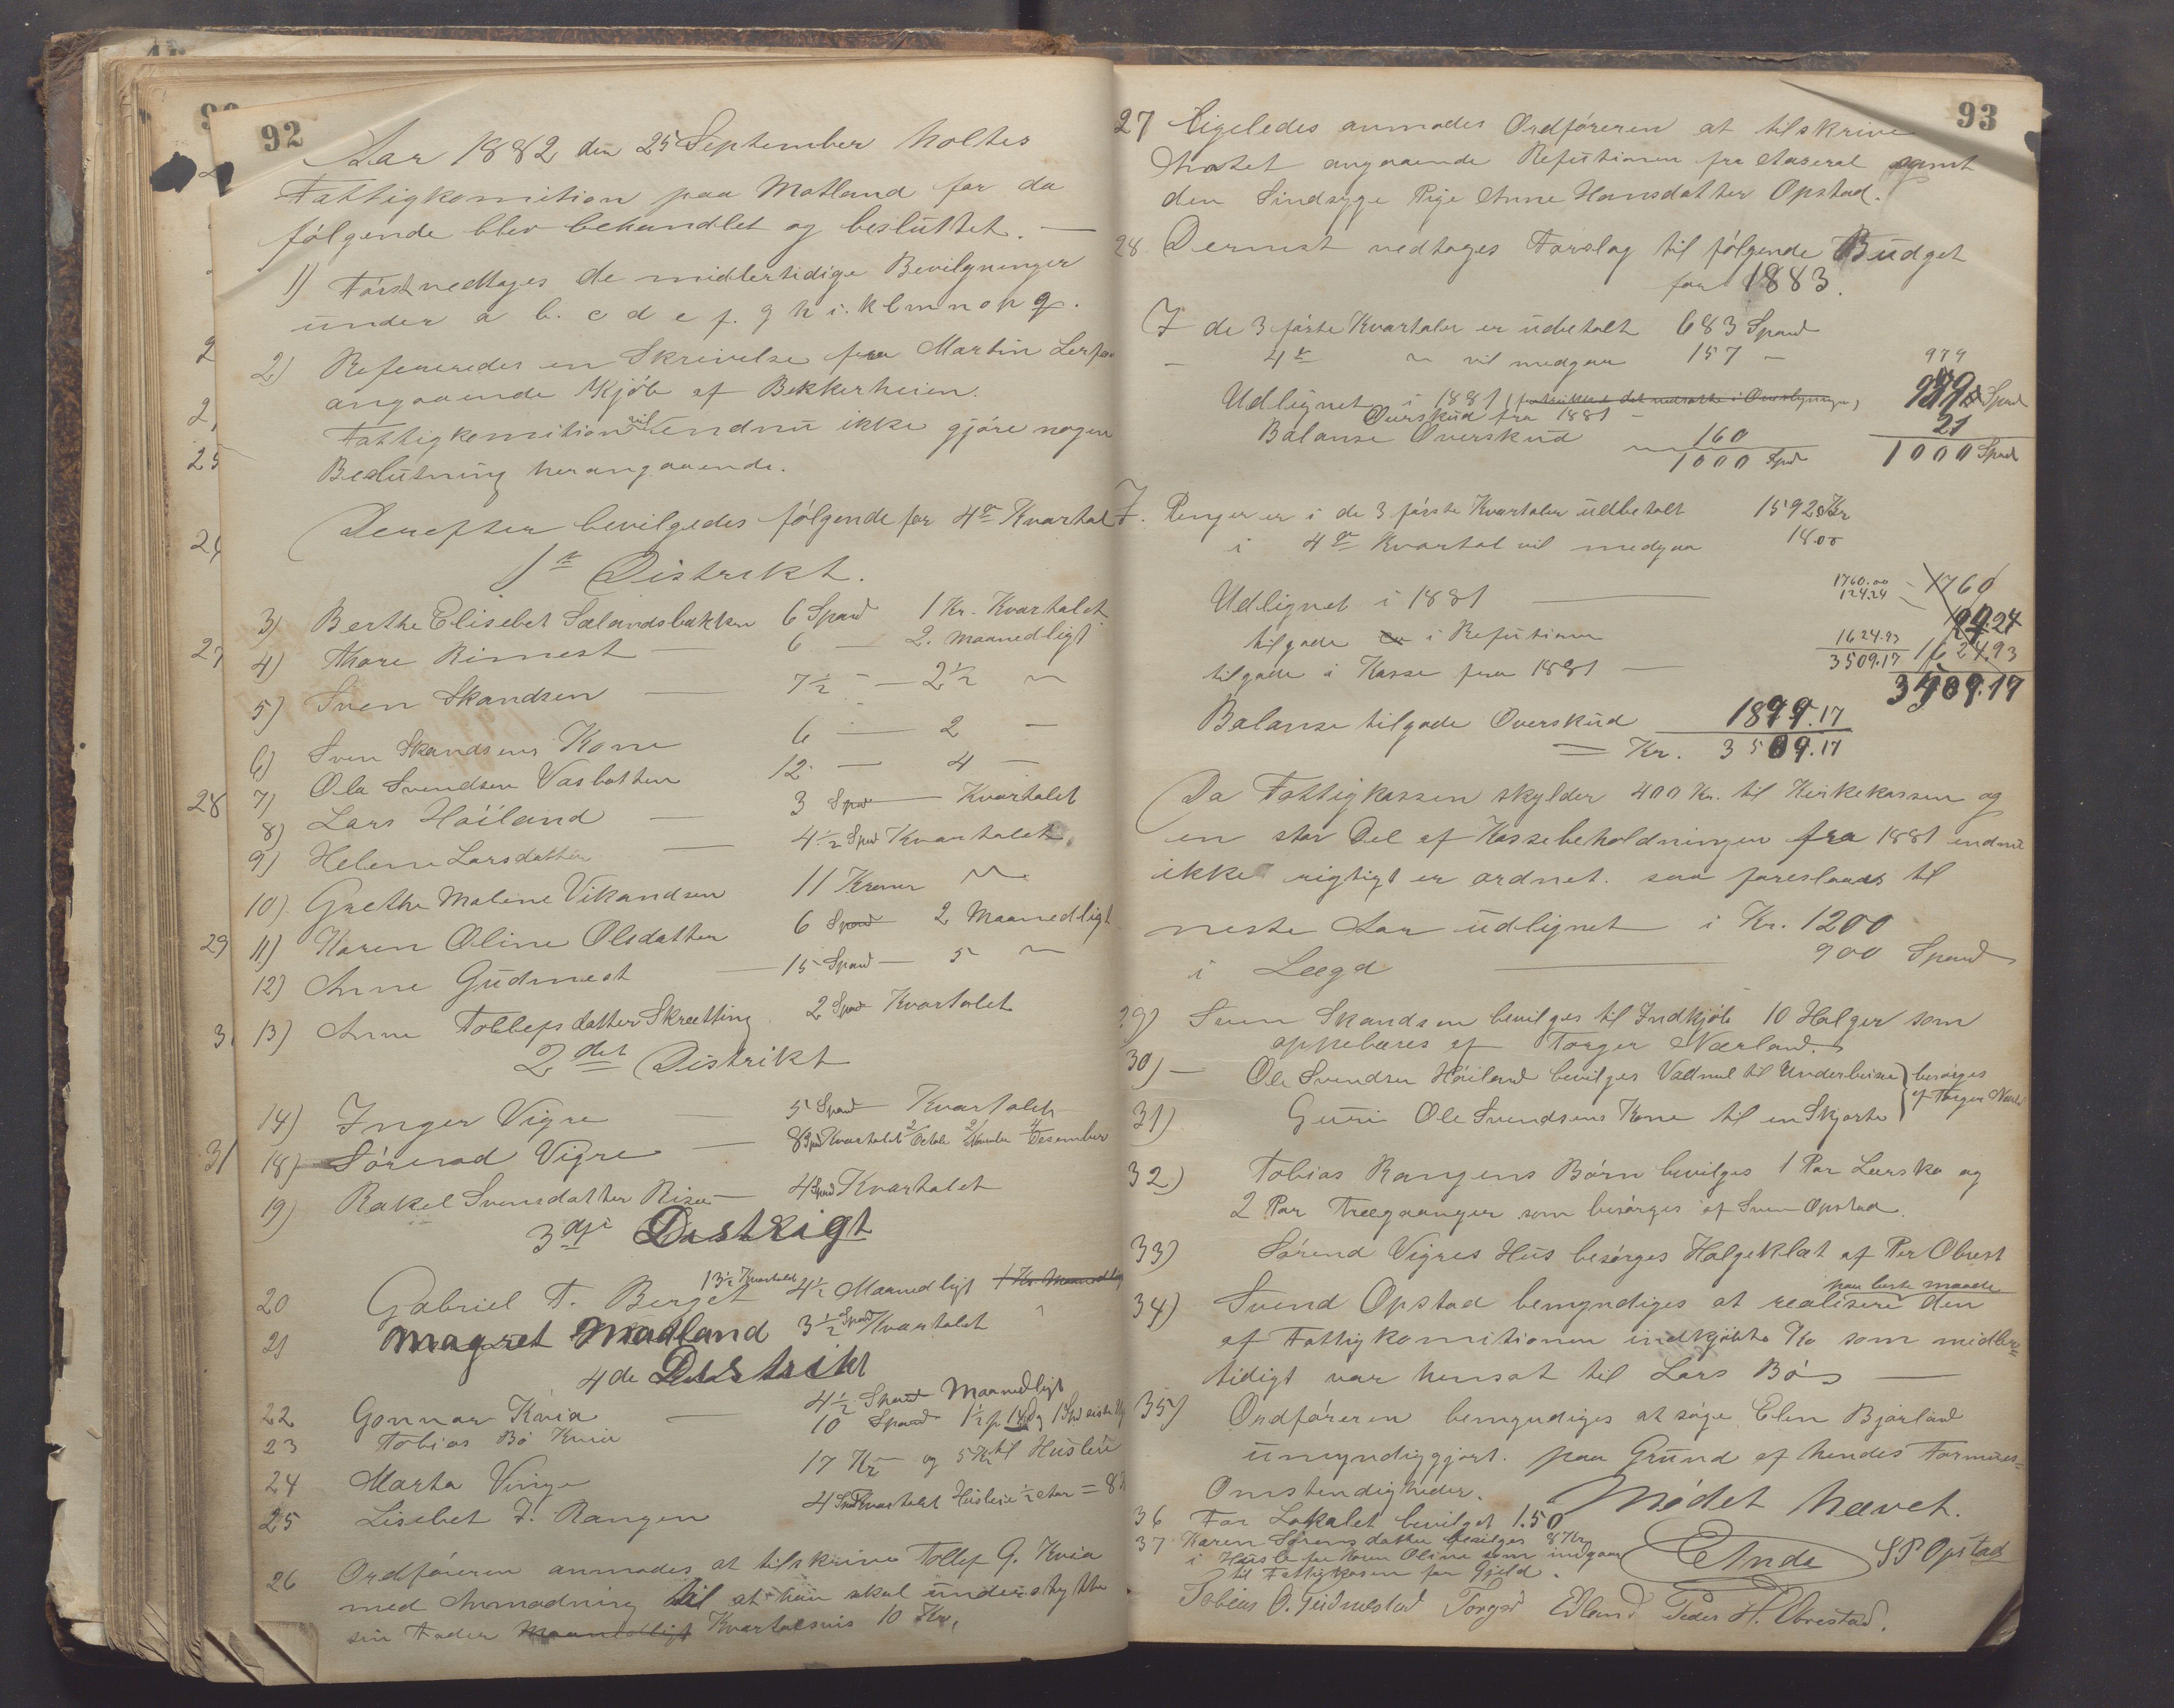 92
Aar 1882 den 25 September holtes
Fattigkomition paa Motland far da
følgende blev behandlet og besluttet. —
1) Først vedtages de midlertidige Bevilgninger
under a b. c d e f. g h i. k l m n o p q.
2) Refereredes en Skrivelse fra Martin
angaaende Kjøb af Bekkerheien.
Fattigkomition vil endnu ikke gjøre nogen
Beslutning herangaaende.
Derefter bevilgedes følgende for 4de Kvartal
1ste Distrikt.
3) Berthe Elisebet Salandsbakken 6 Spand 1 Kr. Kvartalet
4) Thore Rimest — 6 — 2. Maanedligt
5) Sven Skandsen — 7½ — 2½ "
6) Sven Skandsens Kone 6 — 2 —
7) Ole Svendsen Vasbotten 12 — 4 —
8) Lars Høiland — 3 Spand — Kvartalet
9) Helene Larsdatter — 4½ Spd Kvartalet
10) Grethe Malene Vikandsen 11 Kroner "
11) Karen Oline Olsdatter 6 Spand 2 Maanedligt
12) Anne Gudmest — 15 Spand — 5 "
13) Anne Tollefsdatter Skretting 2 Spand Kvartalet
2det Distrikt
14) Inger Vigre — 5 Spand Kvartalet
18) Sørend Vigre — 8 Spd Kvartalet 2/October 2/November 4/Desember
19) Rakel Svensdatter Risa — 4 Spd Kvartalet
3dje Distrigt
20 Gabriel T. Berget 13½ Kvartalet 4½ Maanedligt 1 Kr. Maanedlig
21 Magret Madland 3½ Spand Kvartalet
4de Distrikt
22 Gonnar Kvia — 4½ Spand Maanedligt
23 Tobias Bø Kvia 10 Spand 1½ p. 14 Dag 1 Spd
24 Marta Vinge 17 Kr og 5 Kr til Husleie
25 Lisebet J. Rangen 4 Spd Kvartalet Husleie ½ Aar = 8
26 Ordføreren anmodes at tilskrive Tollef G. Kvia
med Anmodning til at han skal understytte
sin Fader Maanedligt Kvartalsvis 10 Kr.
93
27 Ligeledes anmodes Ordføreren at tilskrive
Amtet angaaende Refutionen fra Aaseral samt
den Sindsyge Pige Anne Hansdatter Opstad.
28 Dernest vedtages Forslag til følgende Budget
for 1883.
I de 3 første Kvartaler er udbetalt 683 Spand
— 4de " vil medgaa 157 — 979
Udlignet i 1881 979 Spand
Overskud fra 1881 — 21
Balanse Overskud 160
1000 Spd 1000 Spand
I. Penger er i de 3 første Kvartaler udbetalt 1592 Kr
i 4de Kvartal vil medgaa 18.00
Udlignet i 1881 — 1760.00 — 1760
tilgode i Refutioner 124.24 124.24
tilgode i Kasse fra 1881 — 1624.93 1624.93
3509.17 3509.17
Balanse tilgode Overskud 1899.17
= Kr. 3509.17
Da Fattigkassen skylder 400 Kr. til Kirkekassen og
en stor Del af Kassebeholdningen fra 1881 endnu
ikke rigtigt er ordnet. saa foreslaaes til
neste Aar udlignet i Kr. 1200
i Lægd — 900 Spand
29) Sven Skandsen bevilges til Indkjøb 10 Halger som
oppebæres af Torger Nærland.
30) — Ole Svendsen Høiland bevilges Vadmel til Underbuxe } besørges
31) Guri Ole Svendsens Kone til en Skjorte } af Torger Nærl
32) Tobias Rangens Børn bevilges 1 Par Læersko og
2 Par Træganger som besørges af Sven Opstad.
33) Sørend Vigres Hus besørges Halgeklæt af Per Obrest
paa beste maade
34) Svend Opstad bemyndiges at realisere den
af Fattigkomitionen indkjøbte Ko som midler=
tidigt var hensat til Lars Bø —
35) Ordføreren bemyndiges at søge Elen Bjorland
umyndiggjort. paa Grund af hendes Formues=
Omstendigheder.
Mødet hævet.
36 For Lokalet bevilget 1.50
37 Karen Sørensdatter bevilges 8 Kr
i Husleie for Karen Oline som indgaar
til Fattigkassen for Gjeld.
E Aude S P Opstad
Tobias O. Gudmestad Torger Edland Peder H. Obrestad.